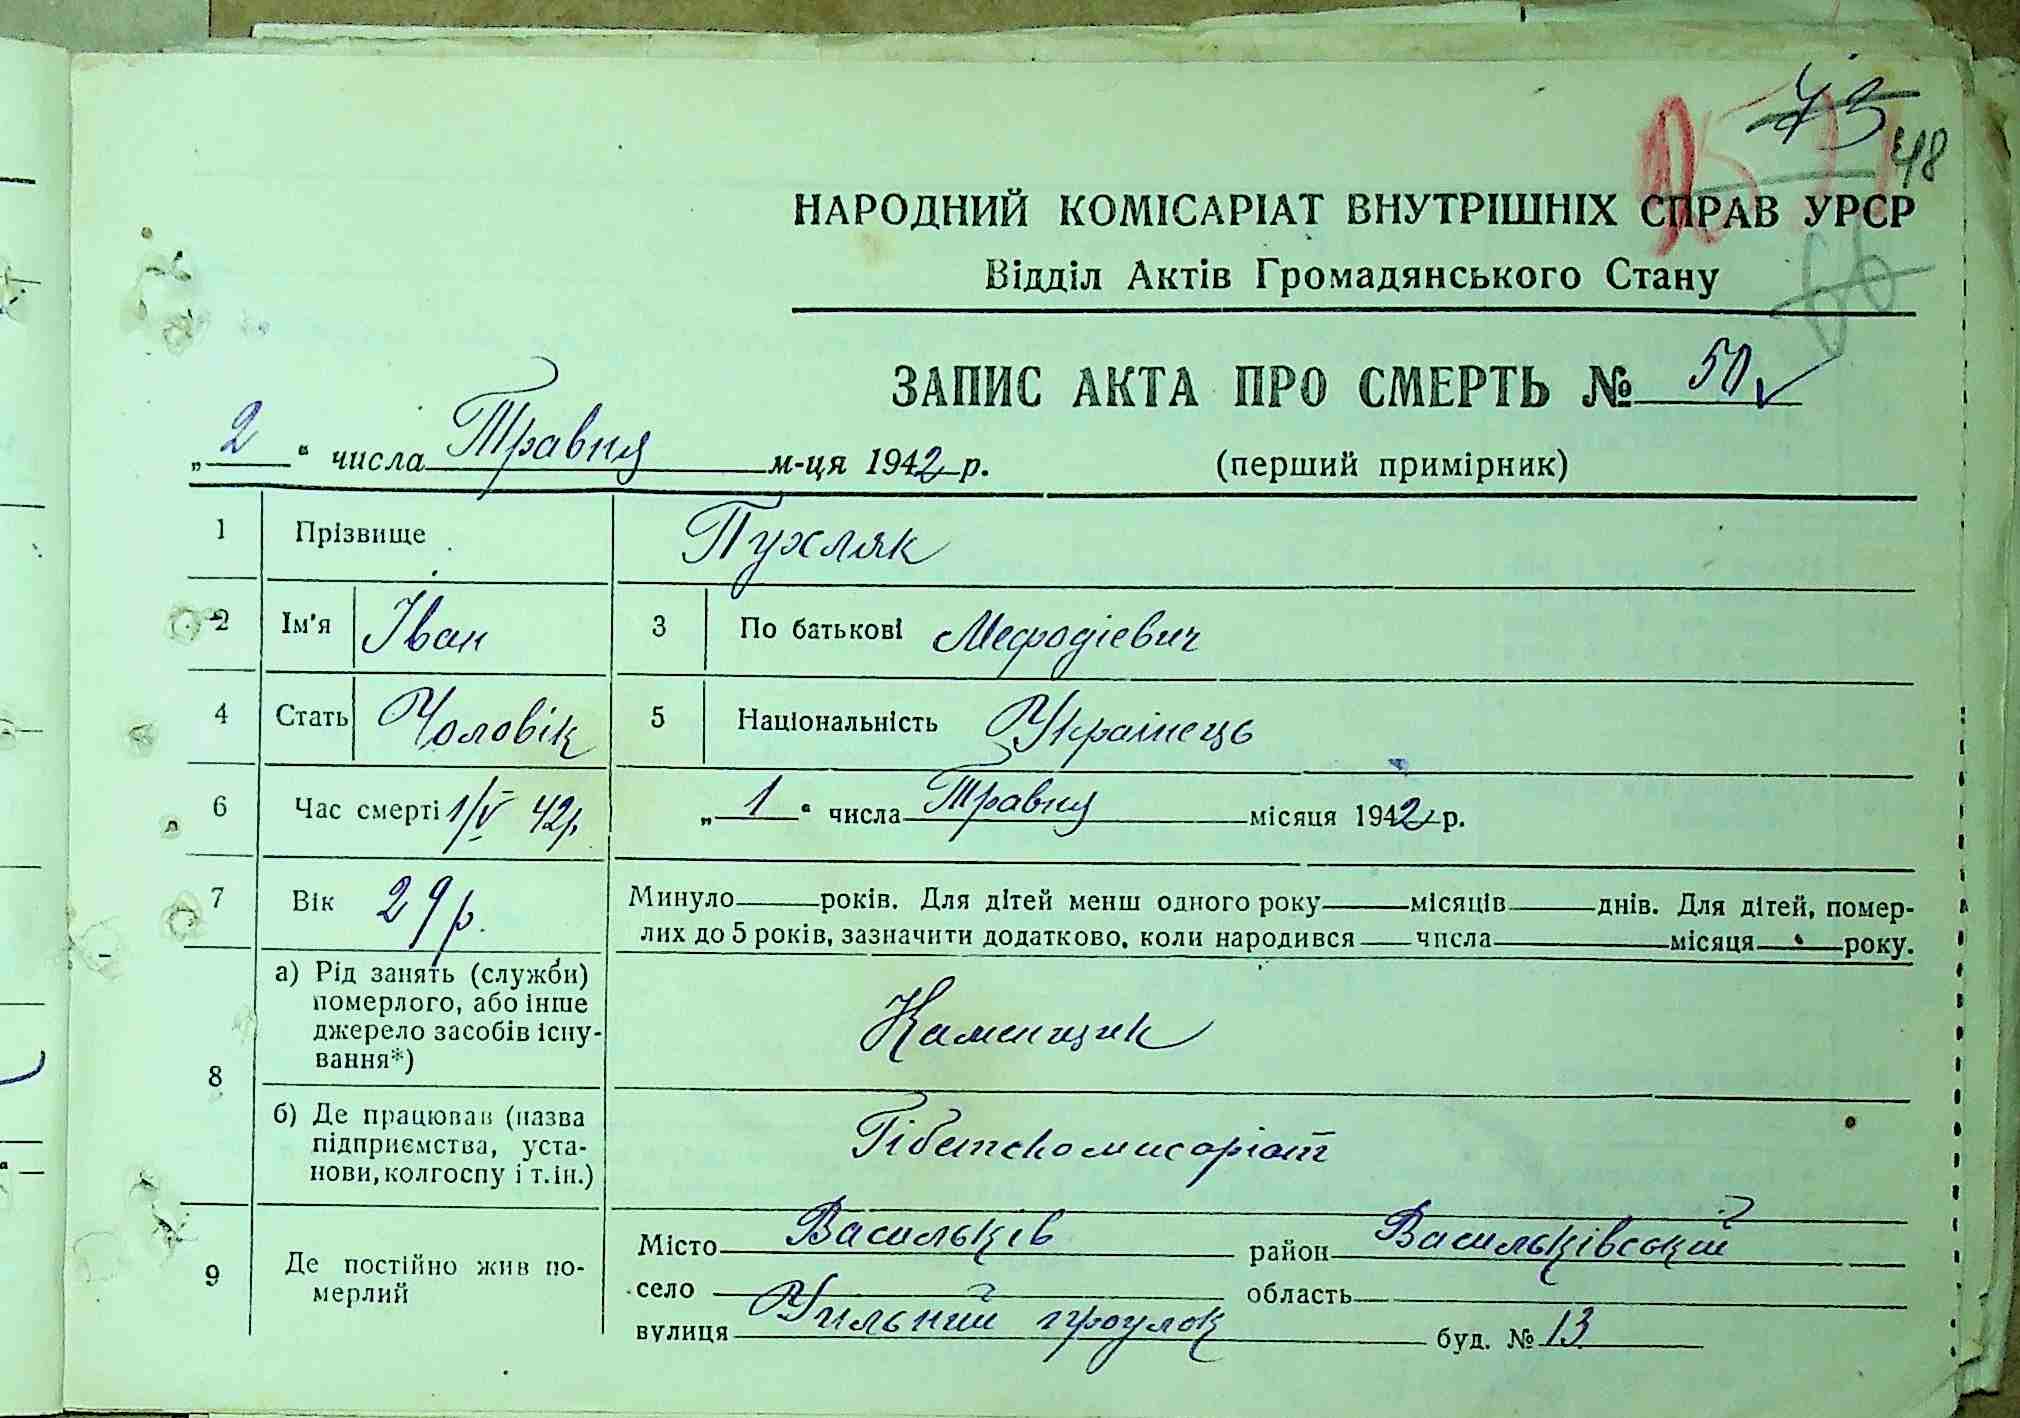 73
48
НАРОДНИЙ КОМІСАРІАТ ВНУТРІШНІХ СПРАВ УРСР
Відділ Актів Громадянського Стану
66
ЗАПИС АКТА ПРО СМЕРТЬ № 50
„2“ числа Травня м-ця 1942 р.
(перший примірник)
1 Прізвище Пухляк
2 Ім'я Іван 3 По батькові Мефодієвич
4 Стать Чоловік 5 Національність Українець
6 Час смерті 1/V 42р. „1“ числа Травня місяця 1942 р.
7 Вік 29 р. Минуло років. Для дітей менш одного року місяців днів. Для дітей, помер-
лих до 5 років, зазначити додатково, коли народився числа місяця року.
8 а) Рід занять (служби)
померлого, або інше
джерело засобів існу-
вання*)
Каменщик
б) Де працював (назва
підприємства, уста-
нови, колгоспу і т.ін.)
Гібетскомисаріат
9 Де постійно жив по-
мерлий
Місто Васильків район Васильківський
село область
вулиця проулок буд. № 13